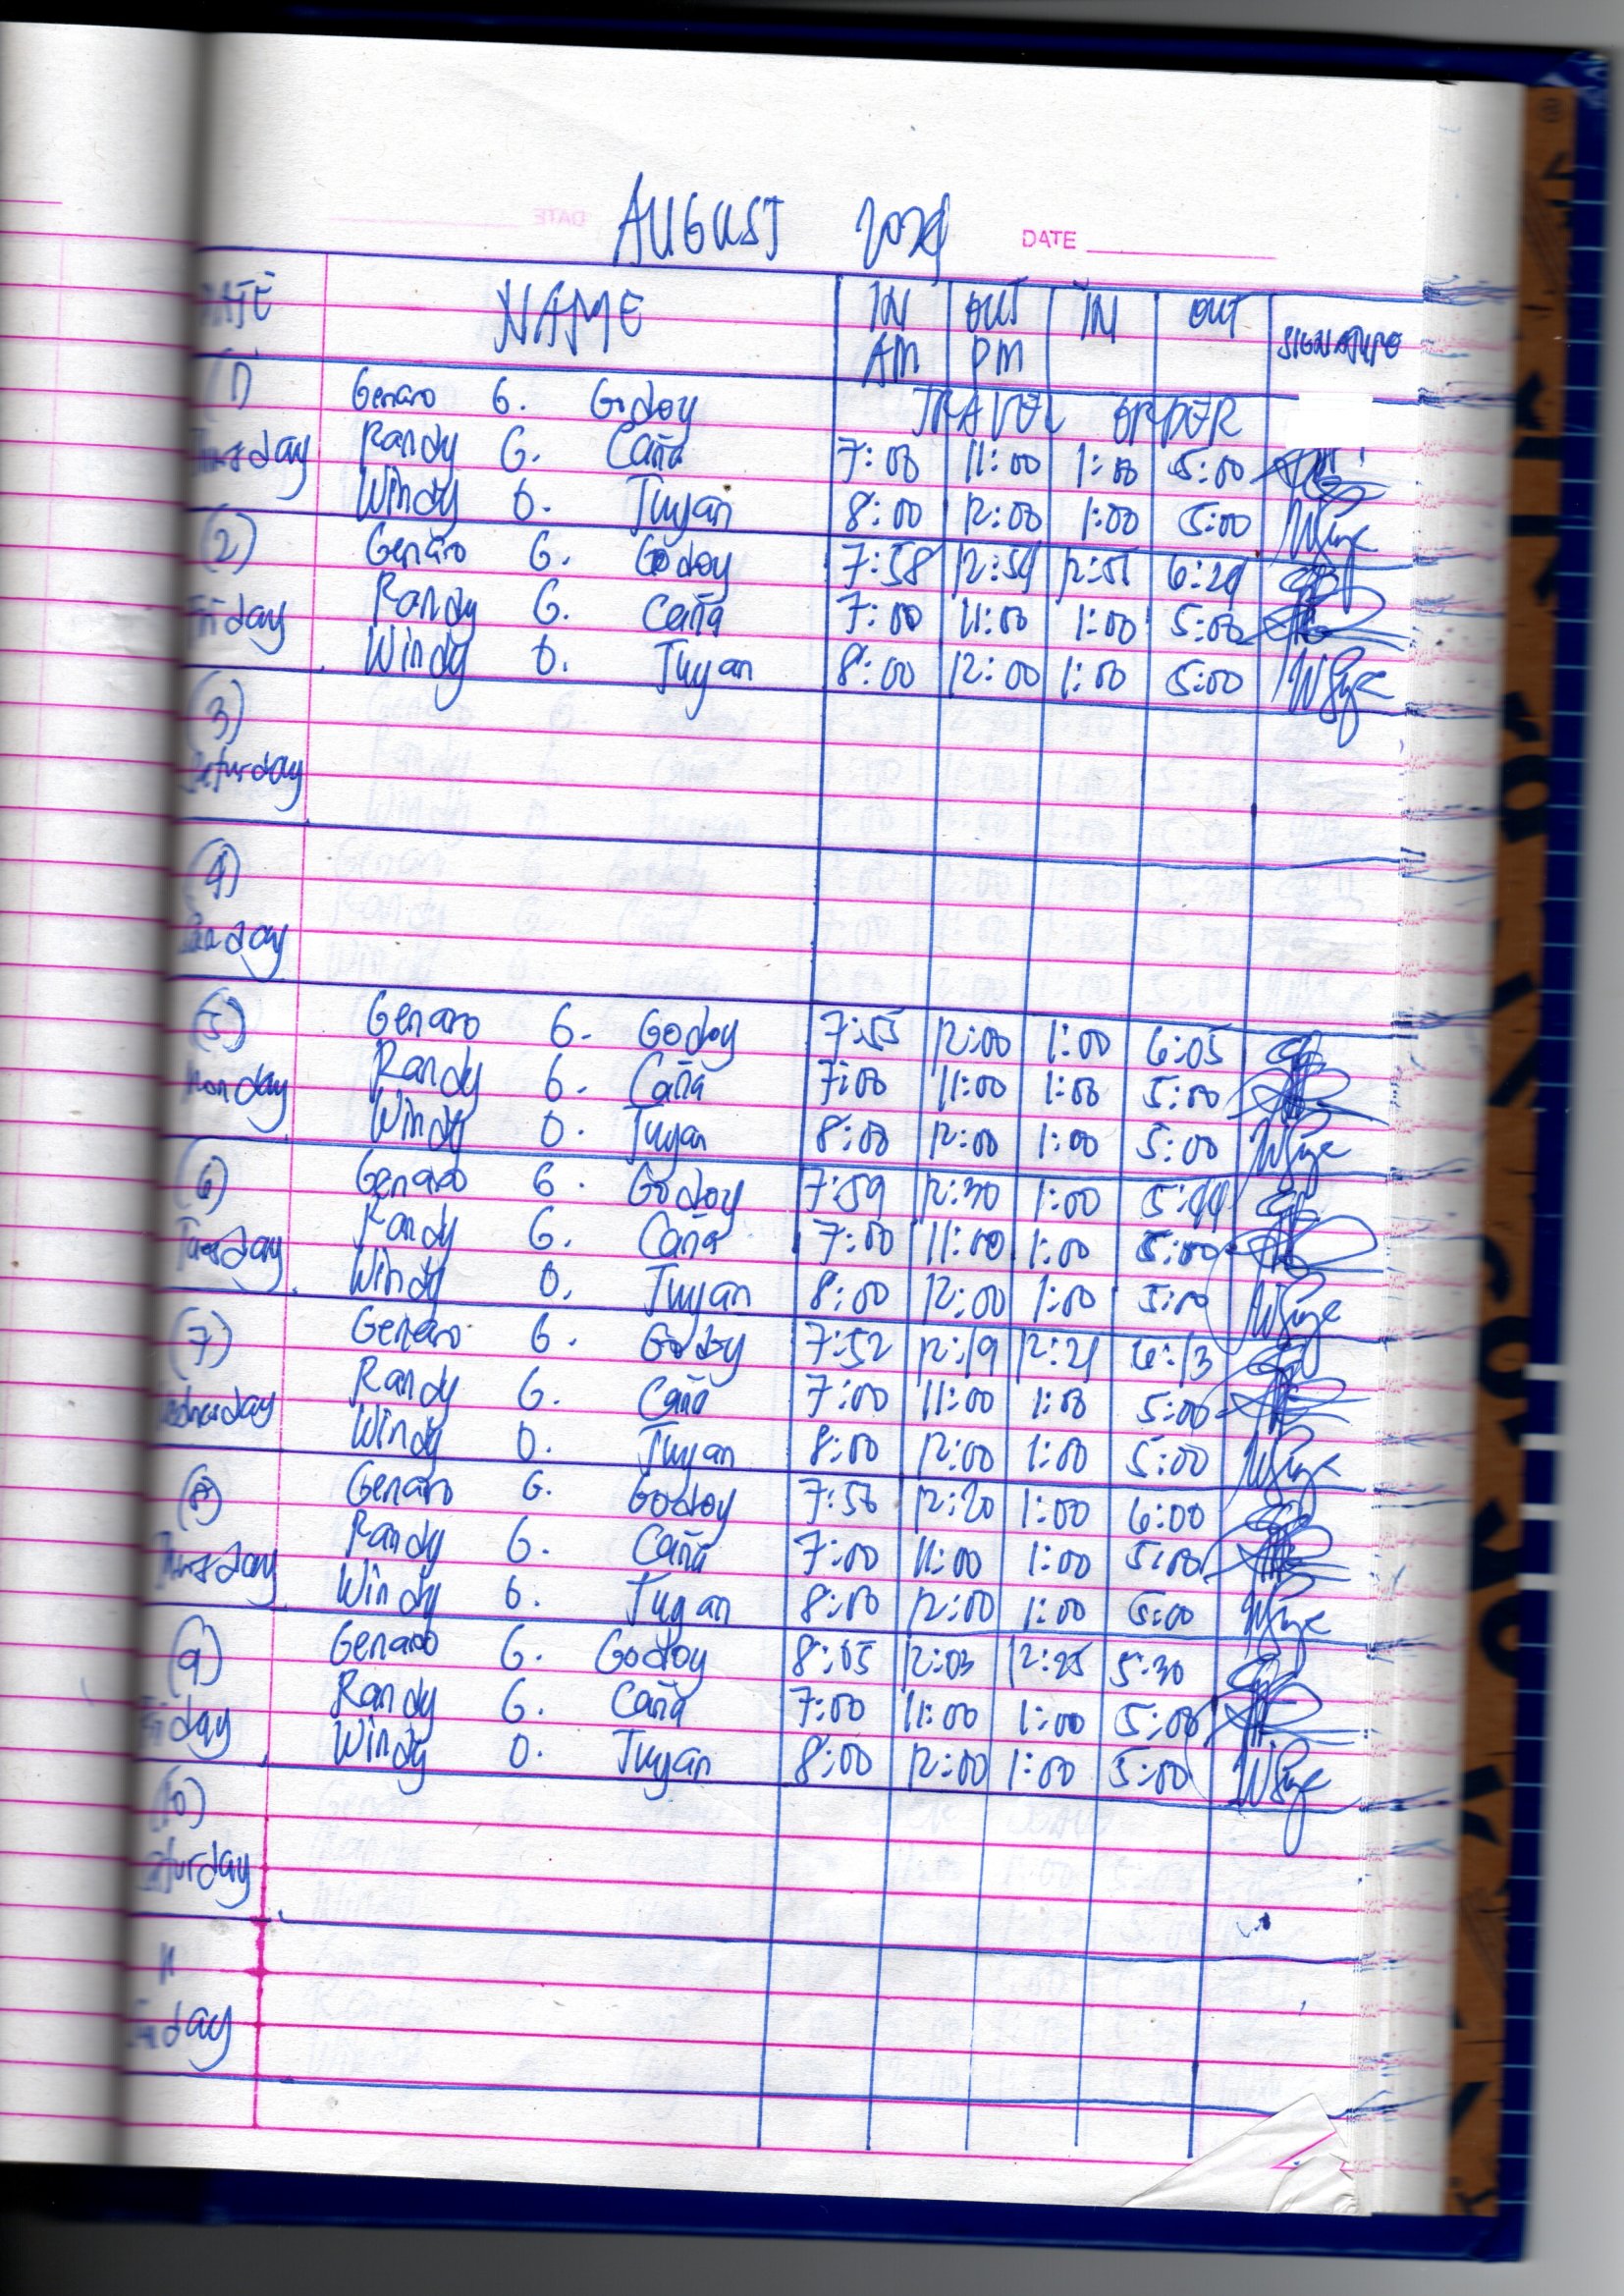 AUGUST 2024 DATE
DATE NAME IN AM OUT PM IN OUT SIGNATURE
(1) Genaro G. Godoy TRAVEL ORDER
Thursday Randy G. Caña 7:00 11:00 1:00 5:00
Windy O. Tuyan 8:00 12:00 1:00 5:00
(2) Genaro G. Godoy 7:58 12:54 12:55 6:24
Friday Randy G. Caña 7:00 11:00 1:00 5:00
Windy O. Tuyan 8:00 12:00 1:00 5:00
(3)
Saturday
(4)
Sunday
(5) Genaro G. Godoy 7:55 12:00 1:00 6:05
Monday Randy G. Caña 7:00 11:00 1:00 5:00
Windy O. Tuyan 8:00 12:00 1:00 5:00
(6) Genaro G. Godoy 7:59 12:30 1:00 5:44
Tuesday Randy G. Caña 7:00 11:00 1:00 5:00
Windy O. Tuyan 8:00 12:00 1:00 5:00
(7) Genaro G. Godoy 7:52 12:19 12:21 6:13
Wednesday Randy G. Caña 7:00 11:00 1:00 5:00
Windy O. Tuyan 8:00 12:00 1:00 5:00
(8) Genaro G. Godoy 7:56 12:20 1:00 6:00
Thursday Randy G. Caña 7:00 11:00 1:00 5:00
Windy O. Tuyan 8:00 12:00 1:00 5:00
(9) Genaro G. Godoy 8:05 12:03 12:25 5:30
Friday Randy G. Caña 7:00 11:00 1:00 5:00
Windy O. Tuyan 8:00 12:00 1:00 5:00
(10)
Saturday
11
Sunday